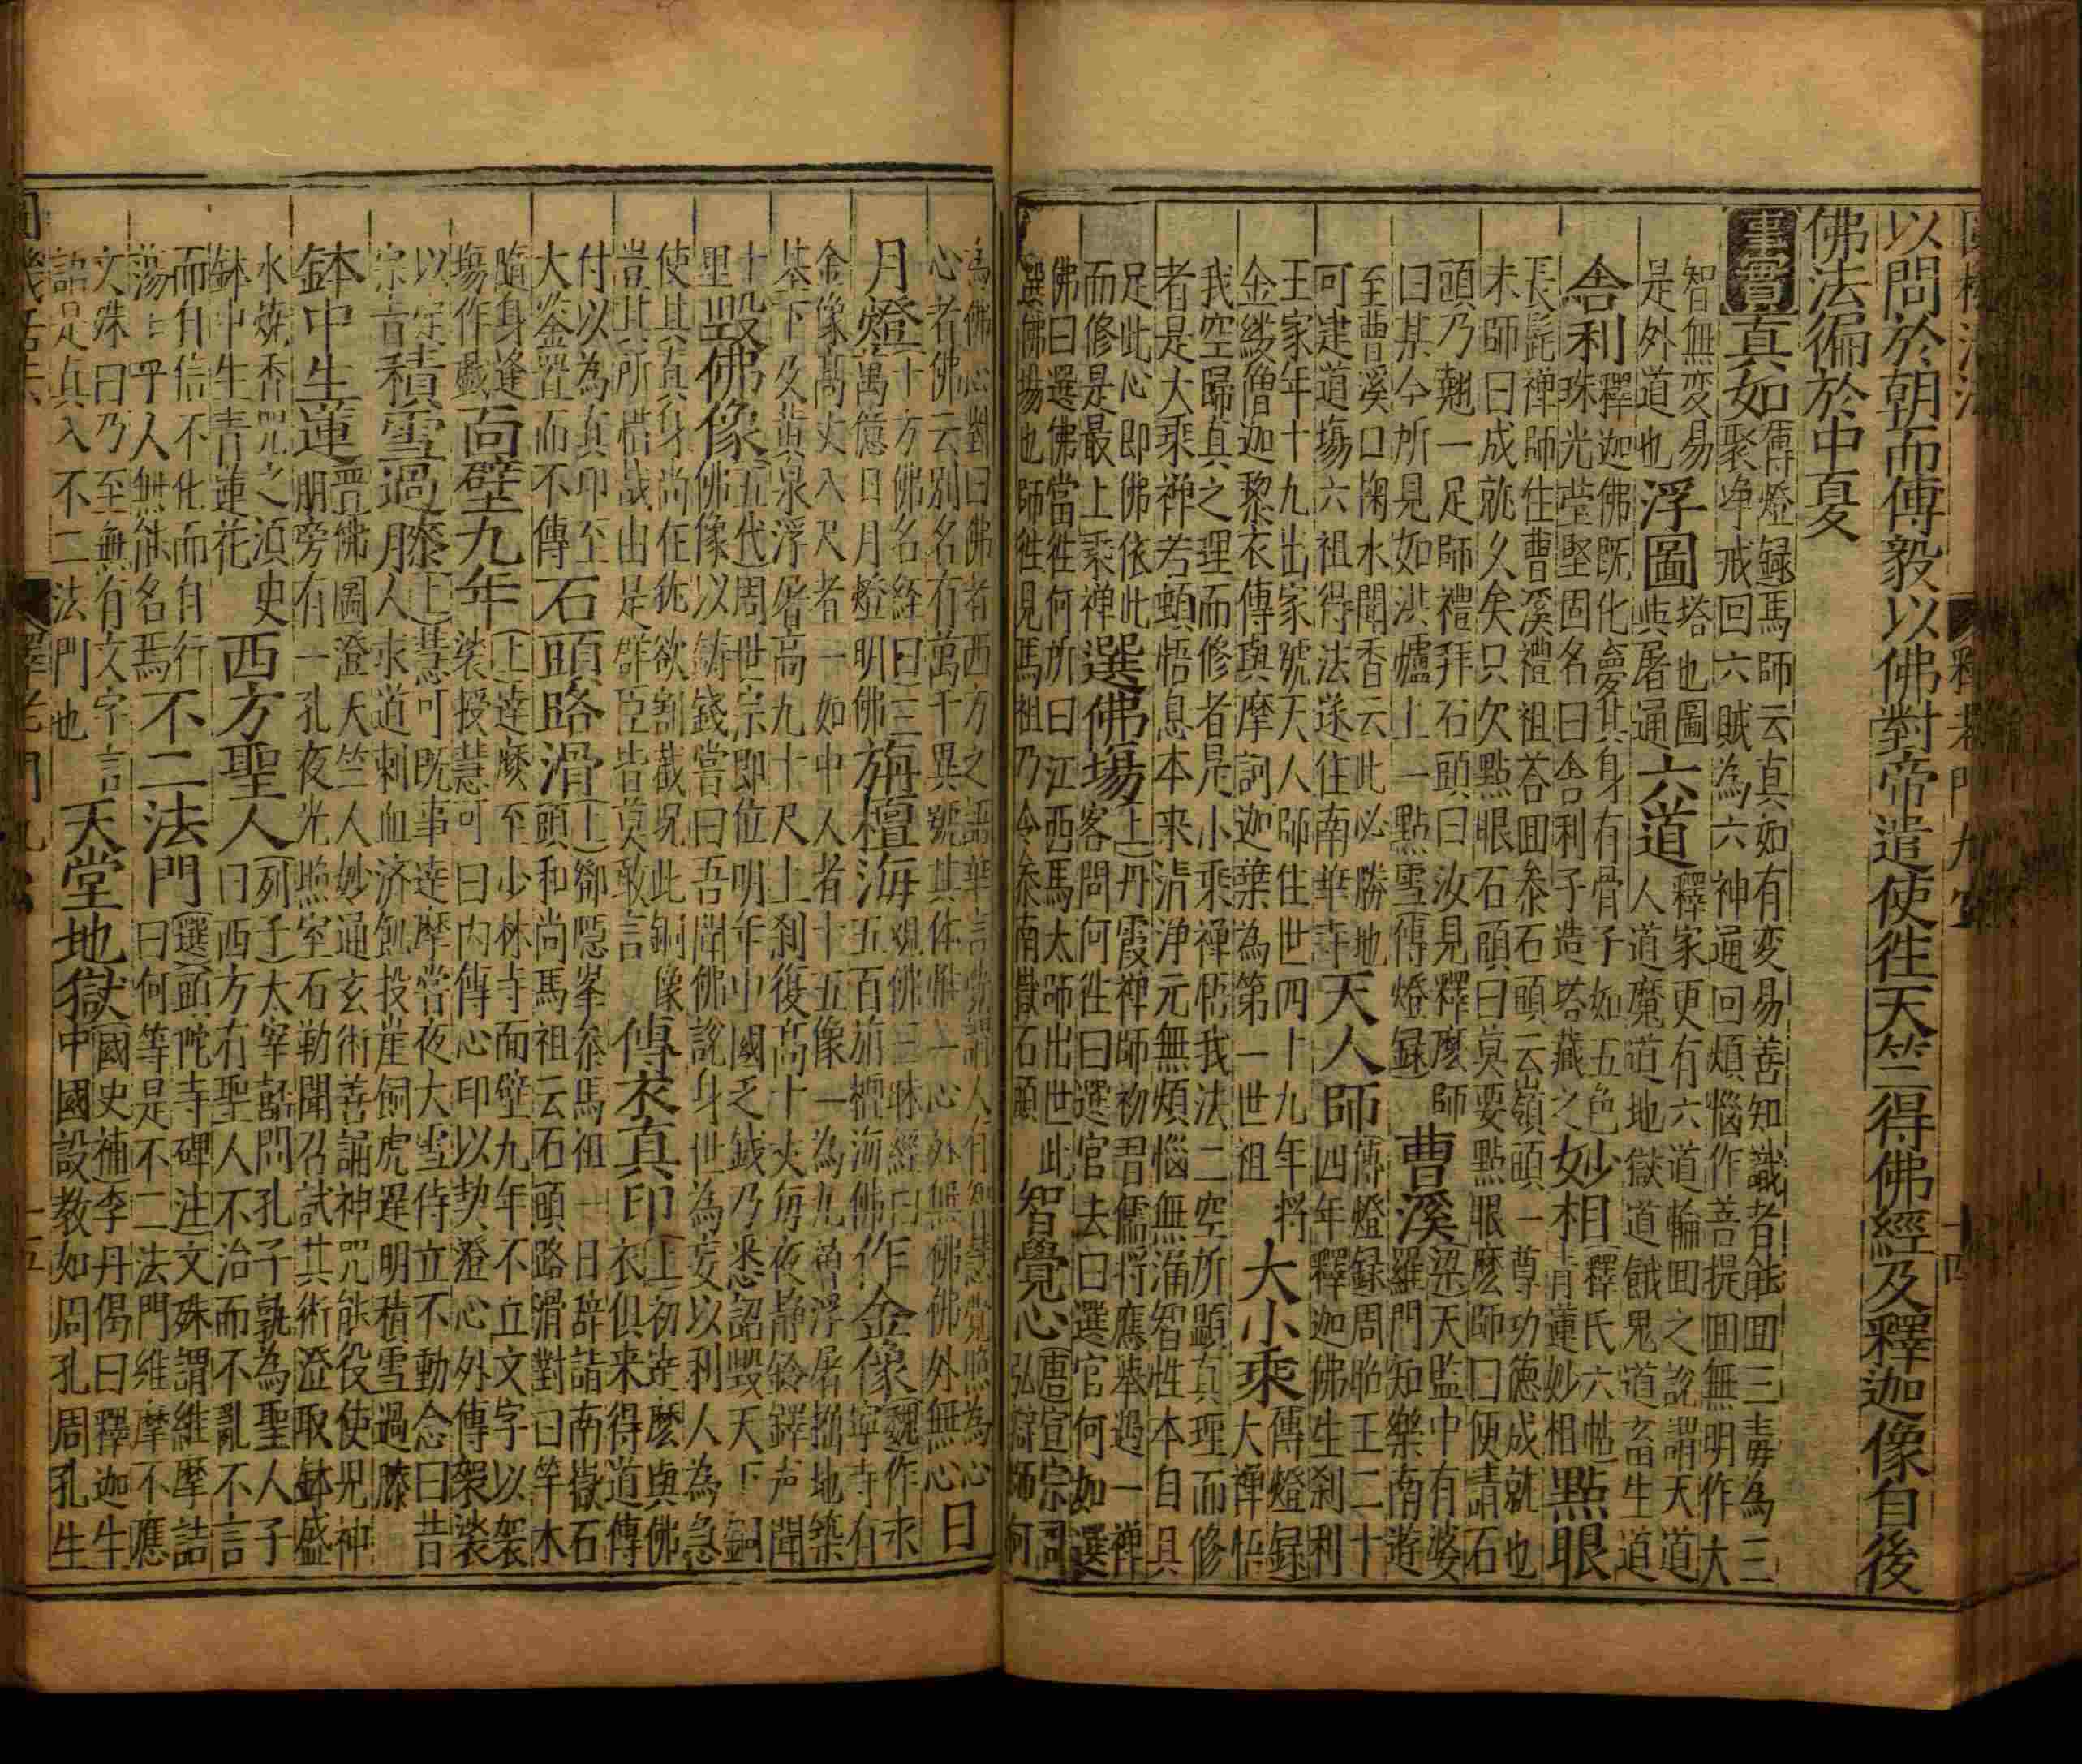 以問於朝而傅毅以佛對帝遣使徃天竺得佛經及釋迦像自後
佛法徧於中夏
事實
真如
傳燈録馬師云真如有変易善知識者能囬三毒為三
聚净戒回六賊為六神通回煩惱作菩提囬無明作大
智無変易
是外道也
浮圖
塔也圖
與屠通
六道
釋家更有六道輪囬之說謂天道
人道魔道地獄道餓鬼道畜生道
舎利
釋迦佛既化其身有骨子如五色
珠光瑩堅固名曰舎利子造塔藏之
妙相
釋氏六帖
青蓮妙相
點眼
長髭禅師住曹溪禮祖荅囬叅石頭云嶺頭一尊功徳成就也
未師曰成就久矣只欠點眼石頭曰莫要點眼麽師曰便請石
頭乃翹一足師禮拜石頭曰汝見釋麽師
曰某今所見如洪爐上一點雪傳燈録
曹溪
梁天監中有婆
羅門知樂南遊
至曹溪口掬水聞香云此必勝地
可建道塲六祖得法遂住南華寺
天人師
傳燈録周昭王二十
四年釋迦佛生刹利
王家年十九出家號天人師住世四十九年将
金縷僧迦黎衣傳與摩訶迦葉為第一世祖
大小乘
傳燈録
大禅悟
我空歸真之理而修者是小乘禅悟我法二空所顕真理而修
者是大乘禅若頓悟息本来清浄元無煩惱無漏智性本自具
足此心即佛依此
而修是最上乘禅
選佛塲
上丹霞禅師初習儒将應舉遇一禅
客問何徃曰選官去曰選官何如選
佛曰選佛當徃何所曰江西馬太師出世此
選佛塲也師徃見馬祖乃令叅南嶽石頭
智覺心
唐宣宗問
弘辯師何
為佛心對曰佛者西方之語華言覺謂人有智慧覺照為心
心者佛云别名有萬千異號其体惟一心外無佛佛外無心
日
月燈
十方佛名經曰三
萬億日月燈明佛
旃檀海
觀佛三昧經曰
五百旃檀海佛
作金像
魏作永
寧寺有
金像髙丈八尺者一如中人者十五像一為九層浮屠掘地築
基下及黄泉浮屠高九十尺上刹復高十丈每夜静鈴鐸声聞
十
里
毁佛像
五代周世宗即位明年中國乏錢乃悉詔毁天下銅
佛像以鋳錢嘗曰吾聞佛說身世為妄以利人為急
使其真身尚在茍欲割截况此銅像
豈其所惜哉由是群臣皆莫敢言
傳衣真印
上初逹麽與佛
衣俱来得道傳
付以為真印至
大鉴置而不傳
石頭路滑
上鄧隠峯叅馬祖一日辞詣南嶽石
頭和尚馬祖云石頭路滑對曰竿木
隨身逢
塲作戯
面壁九年
上逹麽至少林寺面壁九年不立文字以袈
裟授慧可曰内傳心印以契證心外傳袈裟
以定
宗旨
積雪過膝
上慧可既事逹摩嘗夜大雪侍立不動念曰昔
人求道刺血济飢投崖飼虎遲明積雪過膝
鉢中生蓮
晋佛圖澄天竺人妙通玄術善誦神咒能役使鬼神
腋旁有一孔夜光照室石勒聞召試其術澄取鉢盛
水焼香咒之湏臾
鉢中生青蓮花
西方聖人
列子太宰嚭問孔子孰為聖人子
曰西方有聖人不治而不亂不言
而自信不化而自行
蕩蕩乎人無能名焉
不二法門
選頭陀寺碑注文殊謂維摩詰
曰何等是不二法門維摩不應
文殊曰乃至無有文字言
語是真入不二法門也
天堂地獄
國史補李丹偈曰釋迦牛
中國設教如周孔周孔生